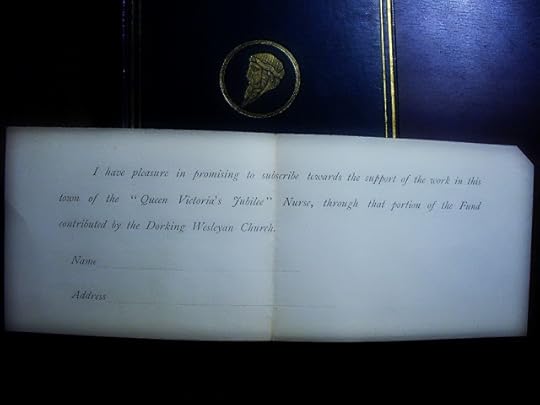 I have pleasure in promising to subscribe towards the support of the work in this
town of the "Queen Victoria's Jubilee" Nurse, through that portion of the Fund
contributed by the Dorking Wesleyan Church.
Name
Address